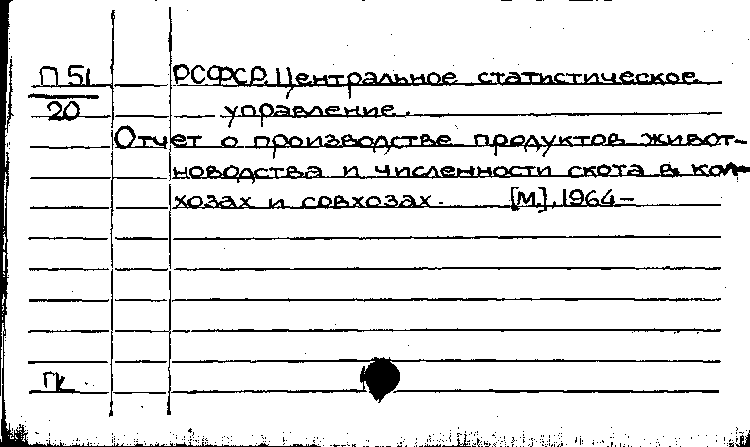 П 51
20
РСФСР. Центральное статистическое
управление.
Отчет о производстве продуктов живот-
новодства и численности скота в кол-
хозах и совхозах. [М.], 1964-
ГК